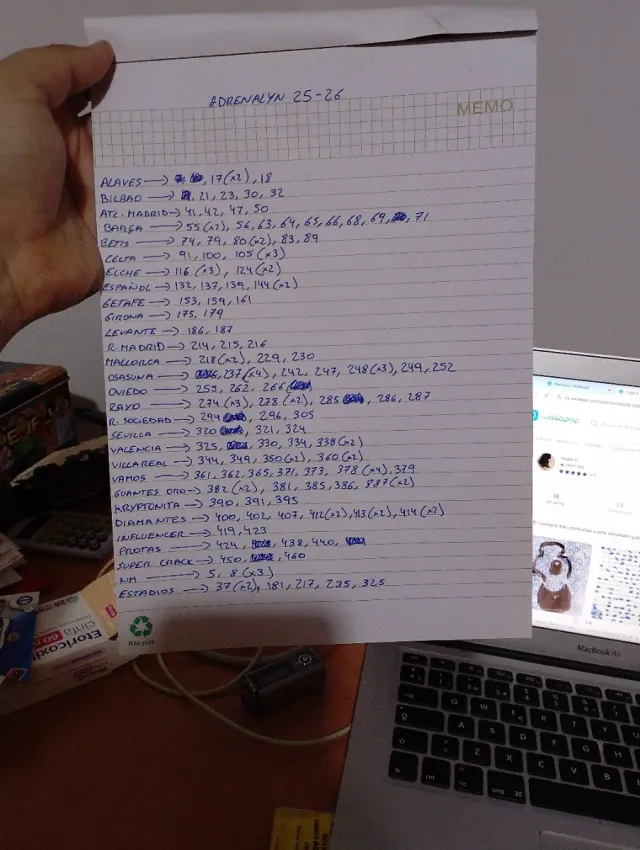 ADRENALYN 25-26
MEMO
ALAVES → 17(x2), 18
BILBAO → 21, 23, 30, 32
ATL. MADRID → 41, 42, 47, 50
BARÇA → 55(x2), 56, 63, 64, 65, 66, 68, 69, 71
BETIS → 74, 79, 80(x2), 83, 89
CELTA → 91, 100, 105(x3)
ELCHE → 116(x3), 124(x2)
ESPAÑOL → 132, 137, 139, 144(x2)
GETAFE → 153, 159, 161
GIRONA → 175, 179
LEVANTE → 186, 187
R. MADRID → 214, 215, 216
MALLORCA → 218(x2), 229, 230
OSASUNA → 237(x4), 242, 247, 248(x3), 249, 252
OVIEDO → 255, 262, 266
RAYO → 274(x3), 278(x2), 285, 286, 287
R. SOCIEDAD → 294, 296, 305
SEVILLA → 320, 321, 324
VALENCIA → 325, 330, 334, 338(x2)
VILLAREAL → 344, 349, 350(x2), 360(x2)
VAMOS → 361, 362, 365, 371, 373, 378(x4), 379
GUANTES ORO → 382(x2), 381, 385, 386, 387(x2)
KRYPTONITA → 390, 391, 395
DIAMANTES → 400, 402, 407, 412(x2), 413(x2), 414(x2)
INFLUENCER → 419, 423
PROTAS → 424, 438, 440
SUPER CRACK → 450, 460
NM → 5, 8(x3)
ESTADIOS → 37(x2), 181, 217, 235, 325
Recycle
wallapop
Etoricoxib
cinfa 60
MacBook Air